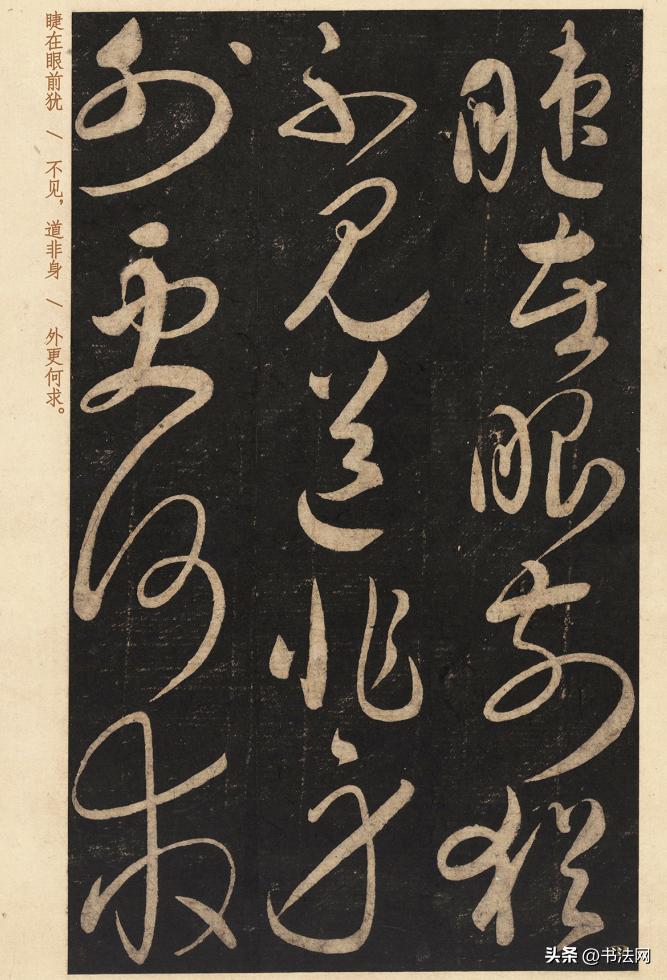 睫在眼前犹
不见道非身
外更何求
睫在眼前犹 \ 不见，道非身 \ 外更何求。
头条 @书法网